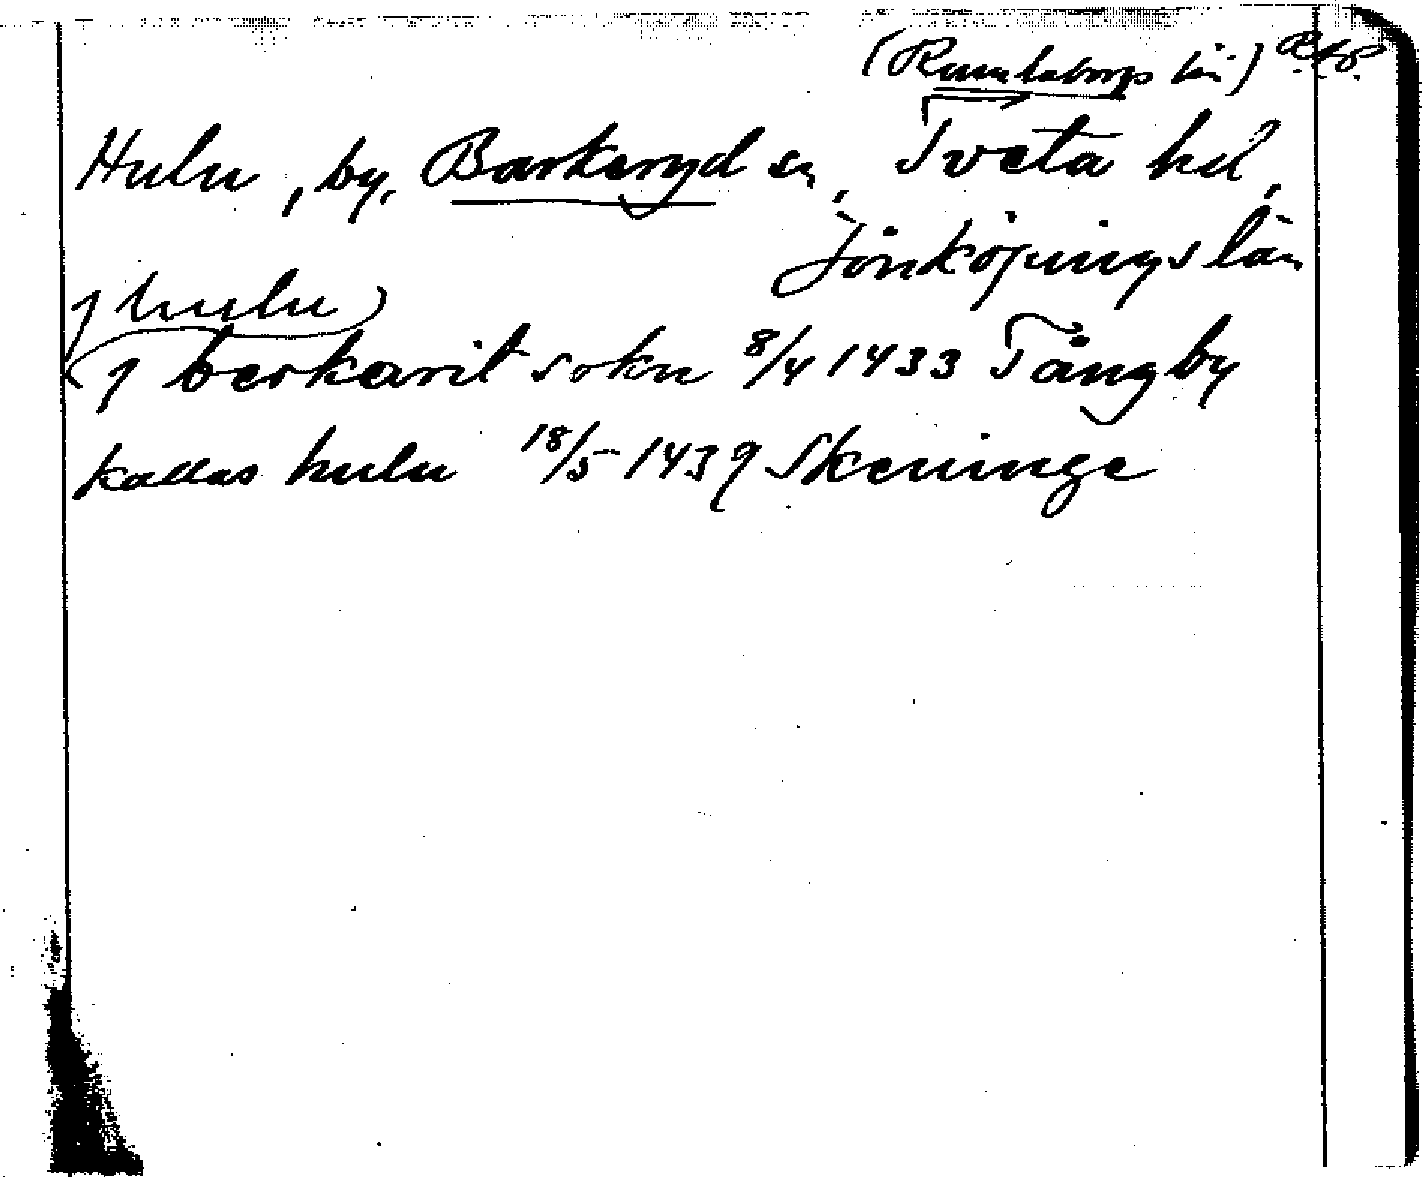 (Rumlaborgs län)
Hulu, by, Barkeryd sn, Tveta hd,
Jönköpings län
j hulu
j berkarit sokn 8/4 1433 Tångby
kallas hulu 18/5 1439 Skeninge